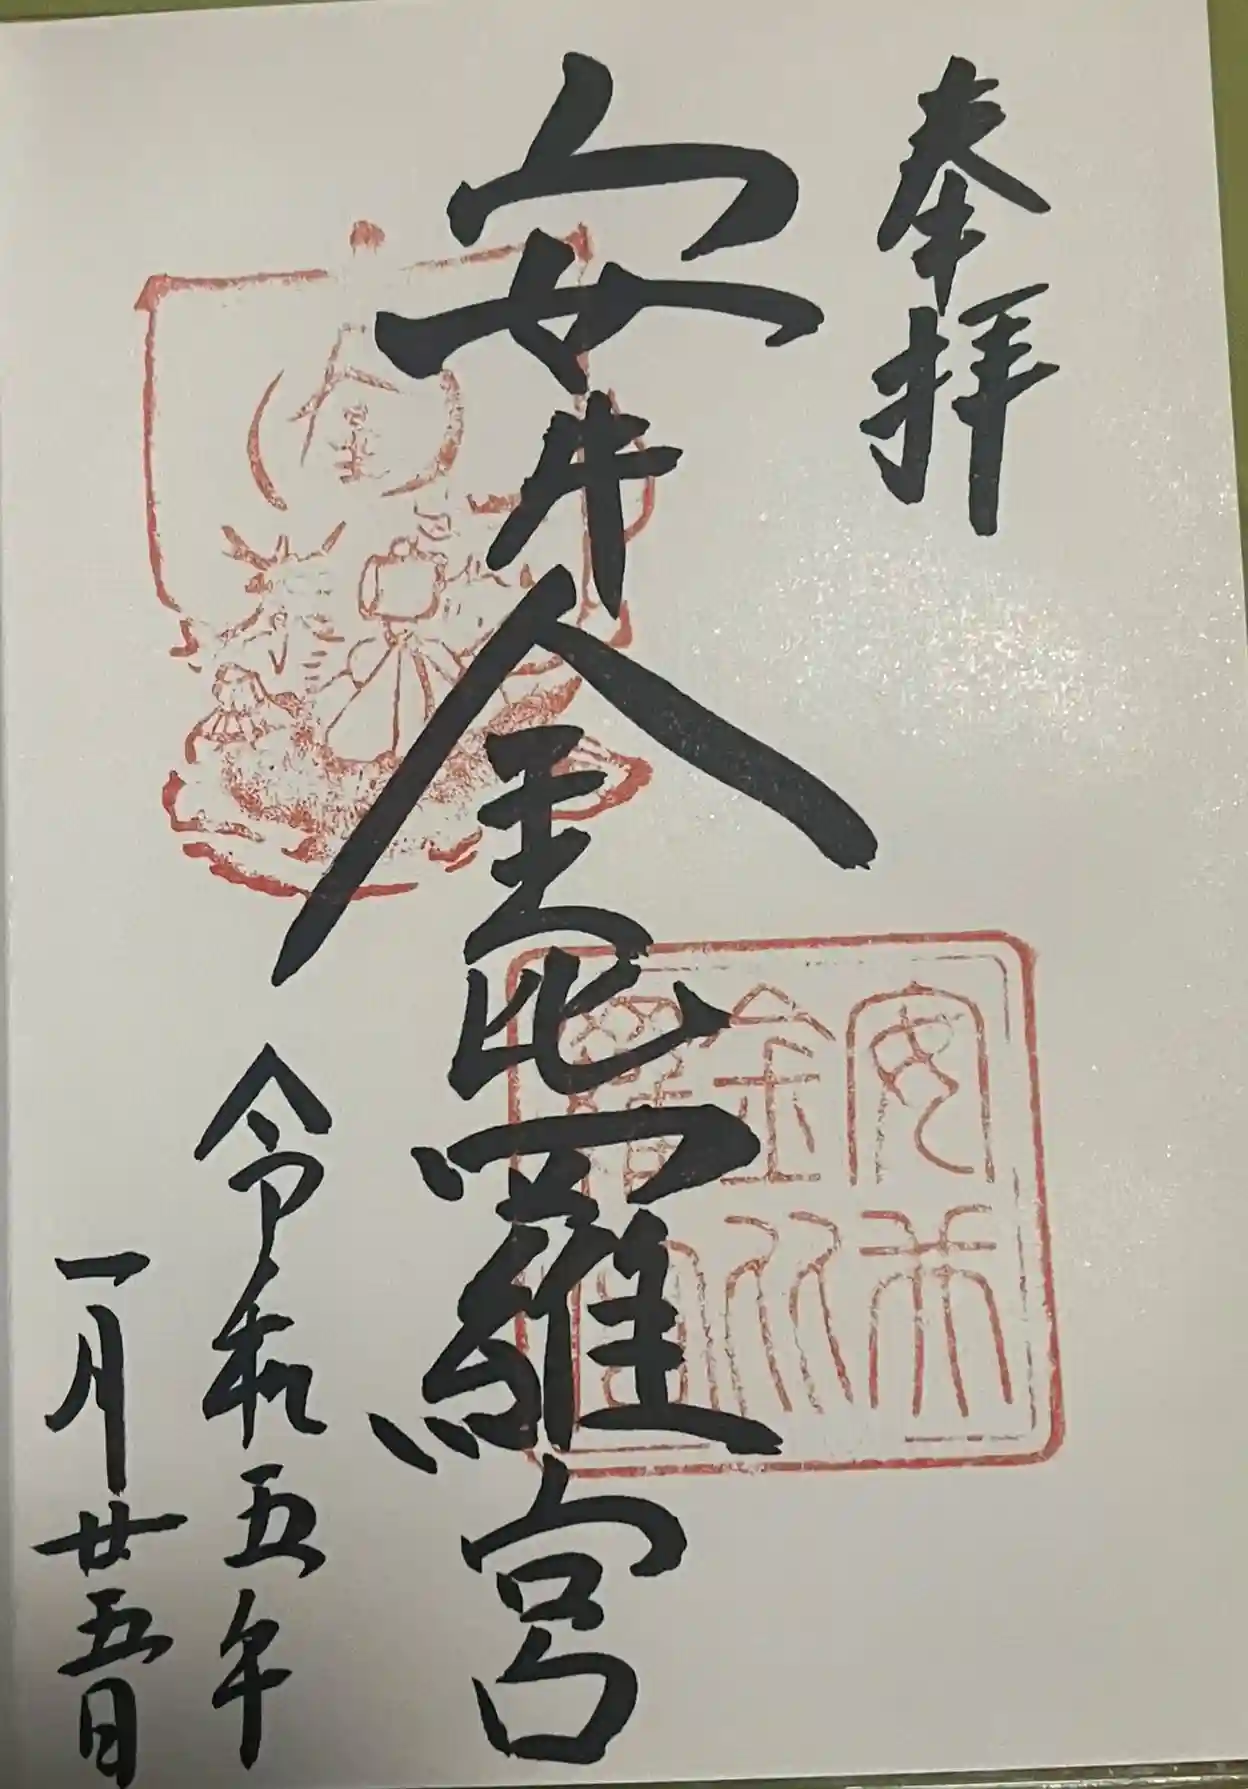 奉拝
安井金比羅宮
令和五年
一月廿五日
金
安井
金比
羅宮